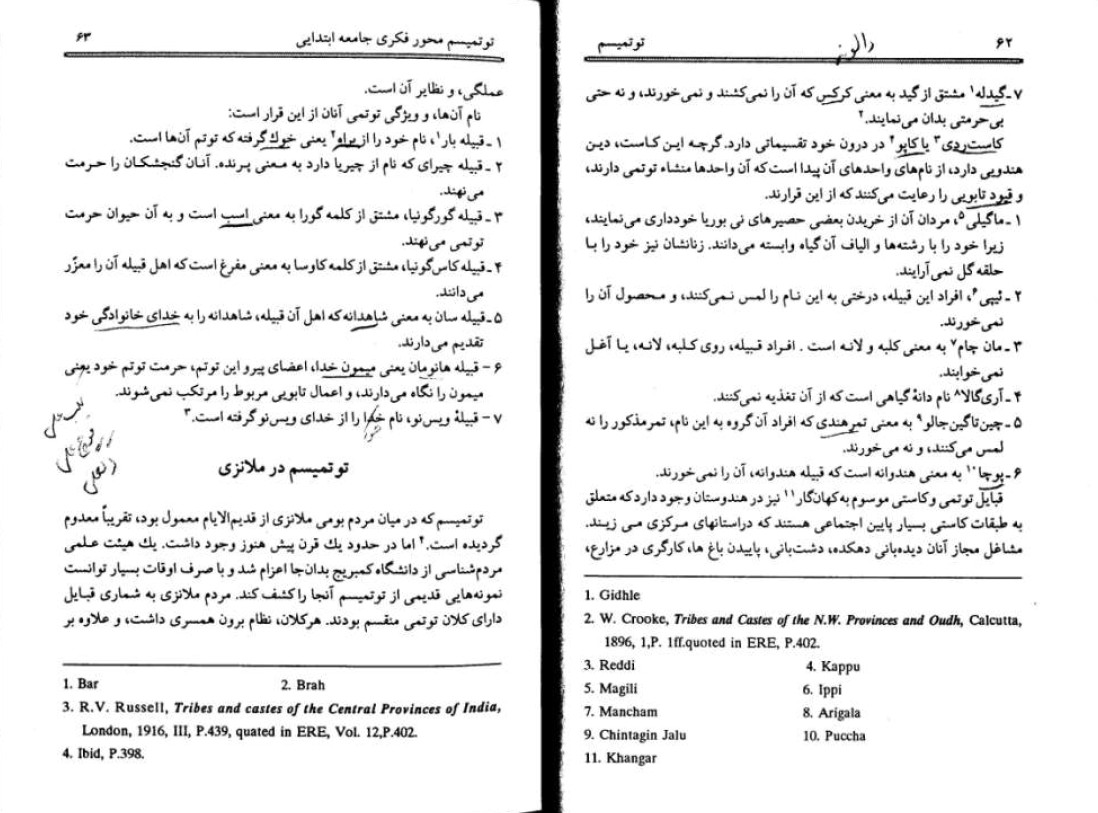 ۶۲ توتمیسم
۷ـ گیدله۱ مشتق از گید به معنی کرکس که آن را نمی‌کشند و نمی‌خورند، و نه حتی
بی‌حرمتی بدان می‌نمایند.۲
کاست‌ردی۳ یا کاپو۴ در درون خود تقسیماتی دارد. گرچه این کاست، دین
هندویی دارد، از نام‌های واحدهای آن پیدا است که آن واحدها منشاء توتمی دارند،
و قیود تابویی را رعایت می‌کنند که از این قرارند.
۱ـ ماگیلی۵، مردان آن از خریدن بعضی حصیرهای نی بوریا خودداری می‌نمایند،
زیرا خود را با رشته‌ها و الیاف آن گیاه وابسته می‌دانند. زنانشان نیز خود را با
حلقه گل نمی‌آرایند.
۲ـ ئیپی۶، افراد این قبیله، درختی به این نام را لمس نمی‌کنند، و محصول آن را
نمی‌خورند.
۳ـ مان جام۷ به معنی کلبه و لانه است . افراد قبیله، روی کلبه، لانه، یا آغل
نمی‌خوابند.
۴ـ آری‌گالا۸ نام دانهٔ گیاهی است که از آن تغذیه نمی‌کنند.
۵ـ چین‌تاگین‌جالو۹ به معنی تمرهندی که افراد آن گروه به این نام، تمر مذکور را نه
لمس می‌کنند، و نه می‌خورند.
۶ـ پوچا۱۰ به معنی هندوانه است که قبیله هندوانه، آن را نمی‌خورند.
قبایل توتمی و کاستی موسوم به کهان‌گار۱۱ نیز در هندوستان وجود دارد که متعلق
به طبقات کاستی بسیار پایین اجتماعی هستند که در استانهای مرکزی می زیند.
مشاغل مجاز آنان دیده‌بانی دهکده، دشت‌بانی، پاییدن باغ ها، کارگری در مزارع،
1. Gidhle
2. W. Crooke, Tribes and Castes of the N.W. Provinces and Oudh, Calcutta,
1896, 1,P. 1ff.quoted in ERE, P.402.
3. Reddi 4. Kappu
5. Magili 6. Ippi
7. Mancham 8. Arigala
9. Chintagin Jalu 10. Puccha
11. Khangar
توتمیسم محور فکری جامعه ابتدایی ۶۳
عملگی، و نظایر آن است.
نام آن‌ها، و ویژگی توتمی آنان از این قرار است:
۱ـ قبیله بار۱، نام خود را از براه۲ یعنی خوك گرفته که توتم آن‌ها است.
۲ـ قبیله چیرای که نام از چیریا دارد به معنی پرنده. آنان گنجشکان را حرمت
می‌نهند.
۳ـ قبیله گورگونیا، مشتق از کلمه گورا به معنی اسب است و به آن حیوان حرمت
توتمی می‌نهند.
۴ـ قبیله کاس‌گونیا، مشتق از کلمه کاوسا به معنی مفرغ است که اهل قبیله آن را معزّر
می‌دانند.
۵ـ قبیله سان به معنی شاهدانه که اهل آن قبیله، شاهدانه را به خدای خانوادگی خود
تقدیم می‌دارند.
۶ـ قبیله هانومان یعنی میمون خدا، اعضای پیرو این توتم، حرمت توتم خود یعنی
میمون را نگاه می‌دارند، و اعمال تابویی مربوط را مرتکب نمی‌شوند.
۷ـ قبیلهٔ ویس‌نو، نام خدا را از خدای ویس‌نو گرفته است.۳
توتمیسم در ملانزی
توتمیسم که در میان مردم بومی ملانزی از قدیم‌الایام معمول بود، تقریباً معدوم
گردیده است.۴ اما در حدود یك قرن پیش هنوز وجود داشت. یك هیئت علمی
مردم‌شناسی از دانشگاه کمبریج بدان‌جا اعزام شد و با صرف اوقات بسیار توانست
نمونه‌هایی قدیمی از توتمیسم آنجا را کشف کند. مردم ملانزی به شماری قبایل
دارای کلان توتمی منقسم بودند. هرکلان، نظام برون همسری داشت، و علاوه بر
1. Bar 2. Brah
3. R.V. Russell, Tribes and castes of the Central Provinces of India,
London, 1916, III, P.439, quated in ERE, Vol. 12,P.402.
4. Ibid, P.398.